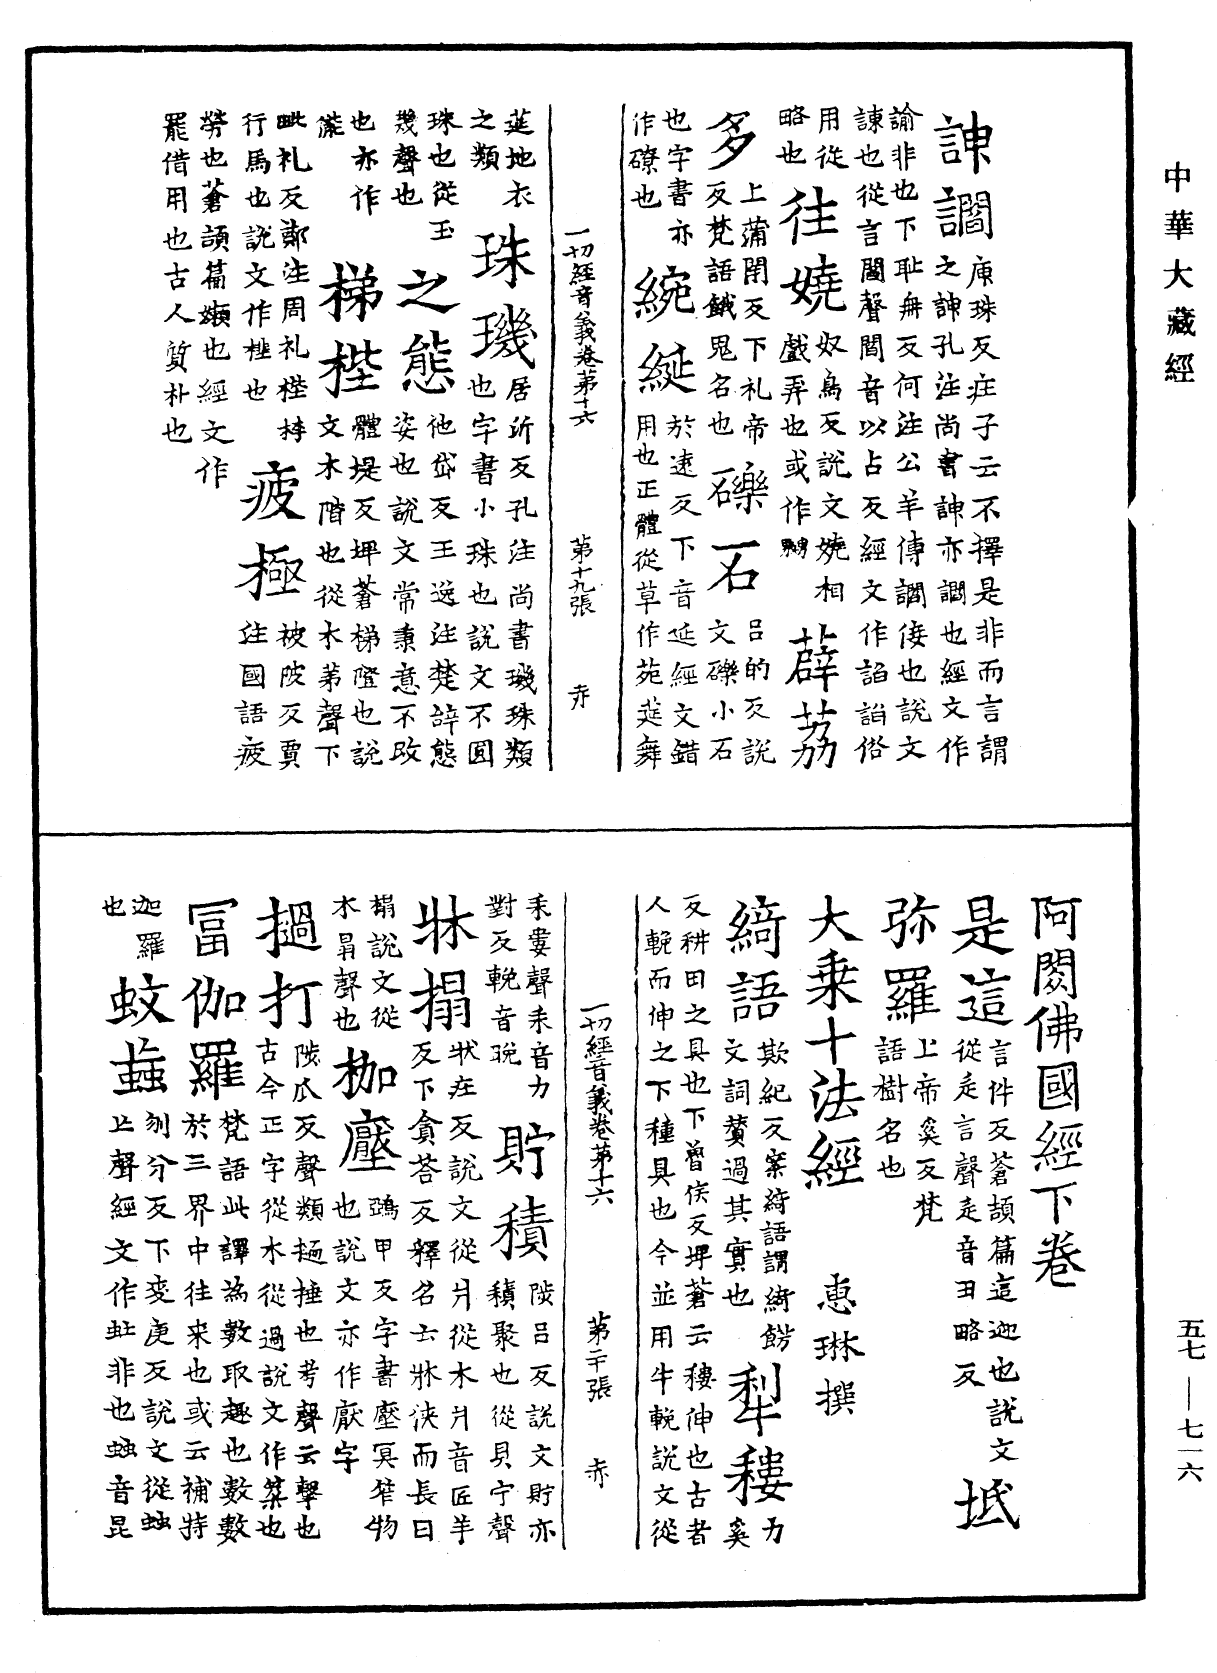 中華大藏經
諛諂 庾珠反庄子云不擇是非而言謂
之諛孔注尚書諛亦諂也經文作
諭非也下耻冉反何注公羊傳諂佞也說文
諫也從言閻聲閻音以占反經文作諂諂俗
用從
略也 往嬈 奴鳥反說文嬈相
戲弄也或作嬲 薜荔
上蒲閉反下礼帝
多 反梵語餓鬼名也 礫石 呂的反說
文礫小石
也字書亦
作礫也 綩綖 於遠反下音延經文錯
用也正體從草作苑莚舞
一切經音義卷第十六 第十九張 赤
莚地衣
之類 珠璣 居沂反孔注尚書璣珠類
也字書小珠也說文不圓
珠也從玉
幾聲也 之態 他岱反王逸注楚辞態
姿也說文常秉意不改
也亦作
㑷 梯桂 體堤反埤蒼梯隥也說
文木階也從木苐聲下
毗礼反鄭注周礼梐㧣
行馬也說文作梐也 疲極 被陂反賈
注國語疲
勞也蒼頡篇嬾也經文作
罷借用也古人質朴也
阿閦佛國經下卷
是這 言件反蒼頡篇這迎也說文
從辵言聲辵音丑略反 坻
弥羅 上帝奚反梵
語樹名也
大乗十法經 惠琳撰
綺語 欺紀反案綺語謂綺餝
文詞贊過其實也 犁耬 力
奚
反耕田之具也下曾侯反埤蒼云耬伸也古者
人輓而伸之下種具也今並用牛輓說文從
一切經音義卷第十六 第二十張 赤
耒婁聲耒音力
對反輓音晚 貯積 陟吕反說文貯亦
積聚也從貝宁聲
牀榻 状庄反說文從爿從木爿音匠羊
反下貪荅反釋名云牀狹而長曰
榻說文從
木𦐇聲也 枷壓 鵶甲反字書壓冥笮物
也說文亦作厭字
撾打 陟瓜反聲類撾捶也考聲云擊也
古今正字從木從過說文作築也
冨伽羅 梵語此譯為數取趣也數數
於三界中往来也或云補特
迦羅
也 蚊蝱 刎分反下麦庚反說文從䖵
亾聲經文作虻非也䖵音昆
五七—七一六